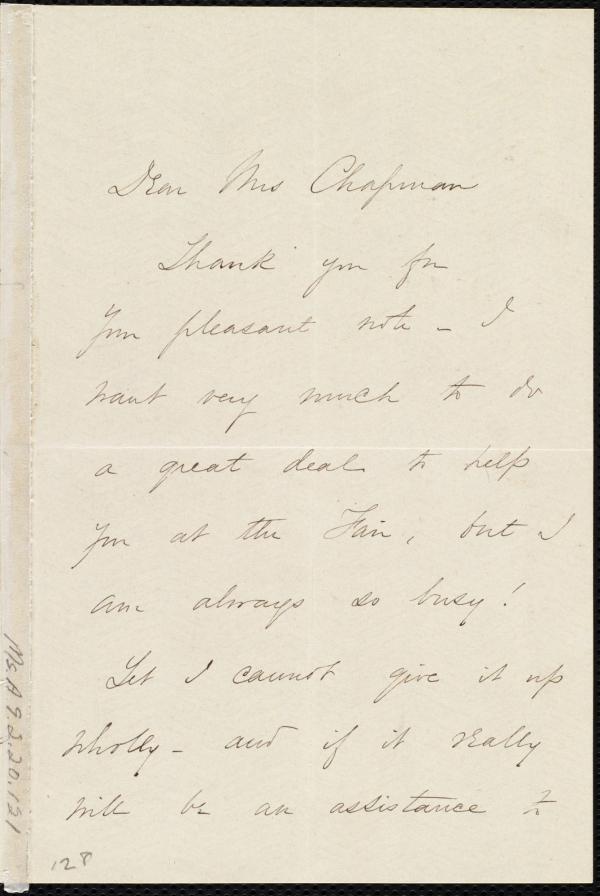 Dear Mrs Chapman
Thank you for
your pleasant note - I
want very much to do
a great deal to help
you at the Fair, but I
am always so busy!
Yet I cannot give it up
wholly - and if it really
will be an assistance to
128
Ms. A 9.2.20.131